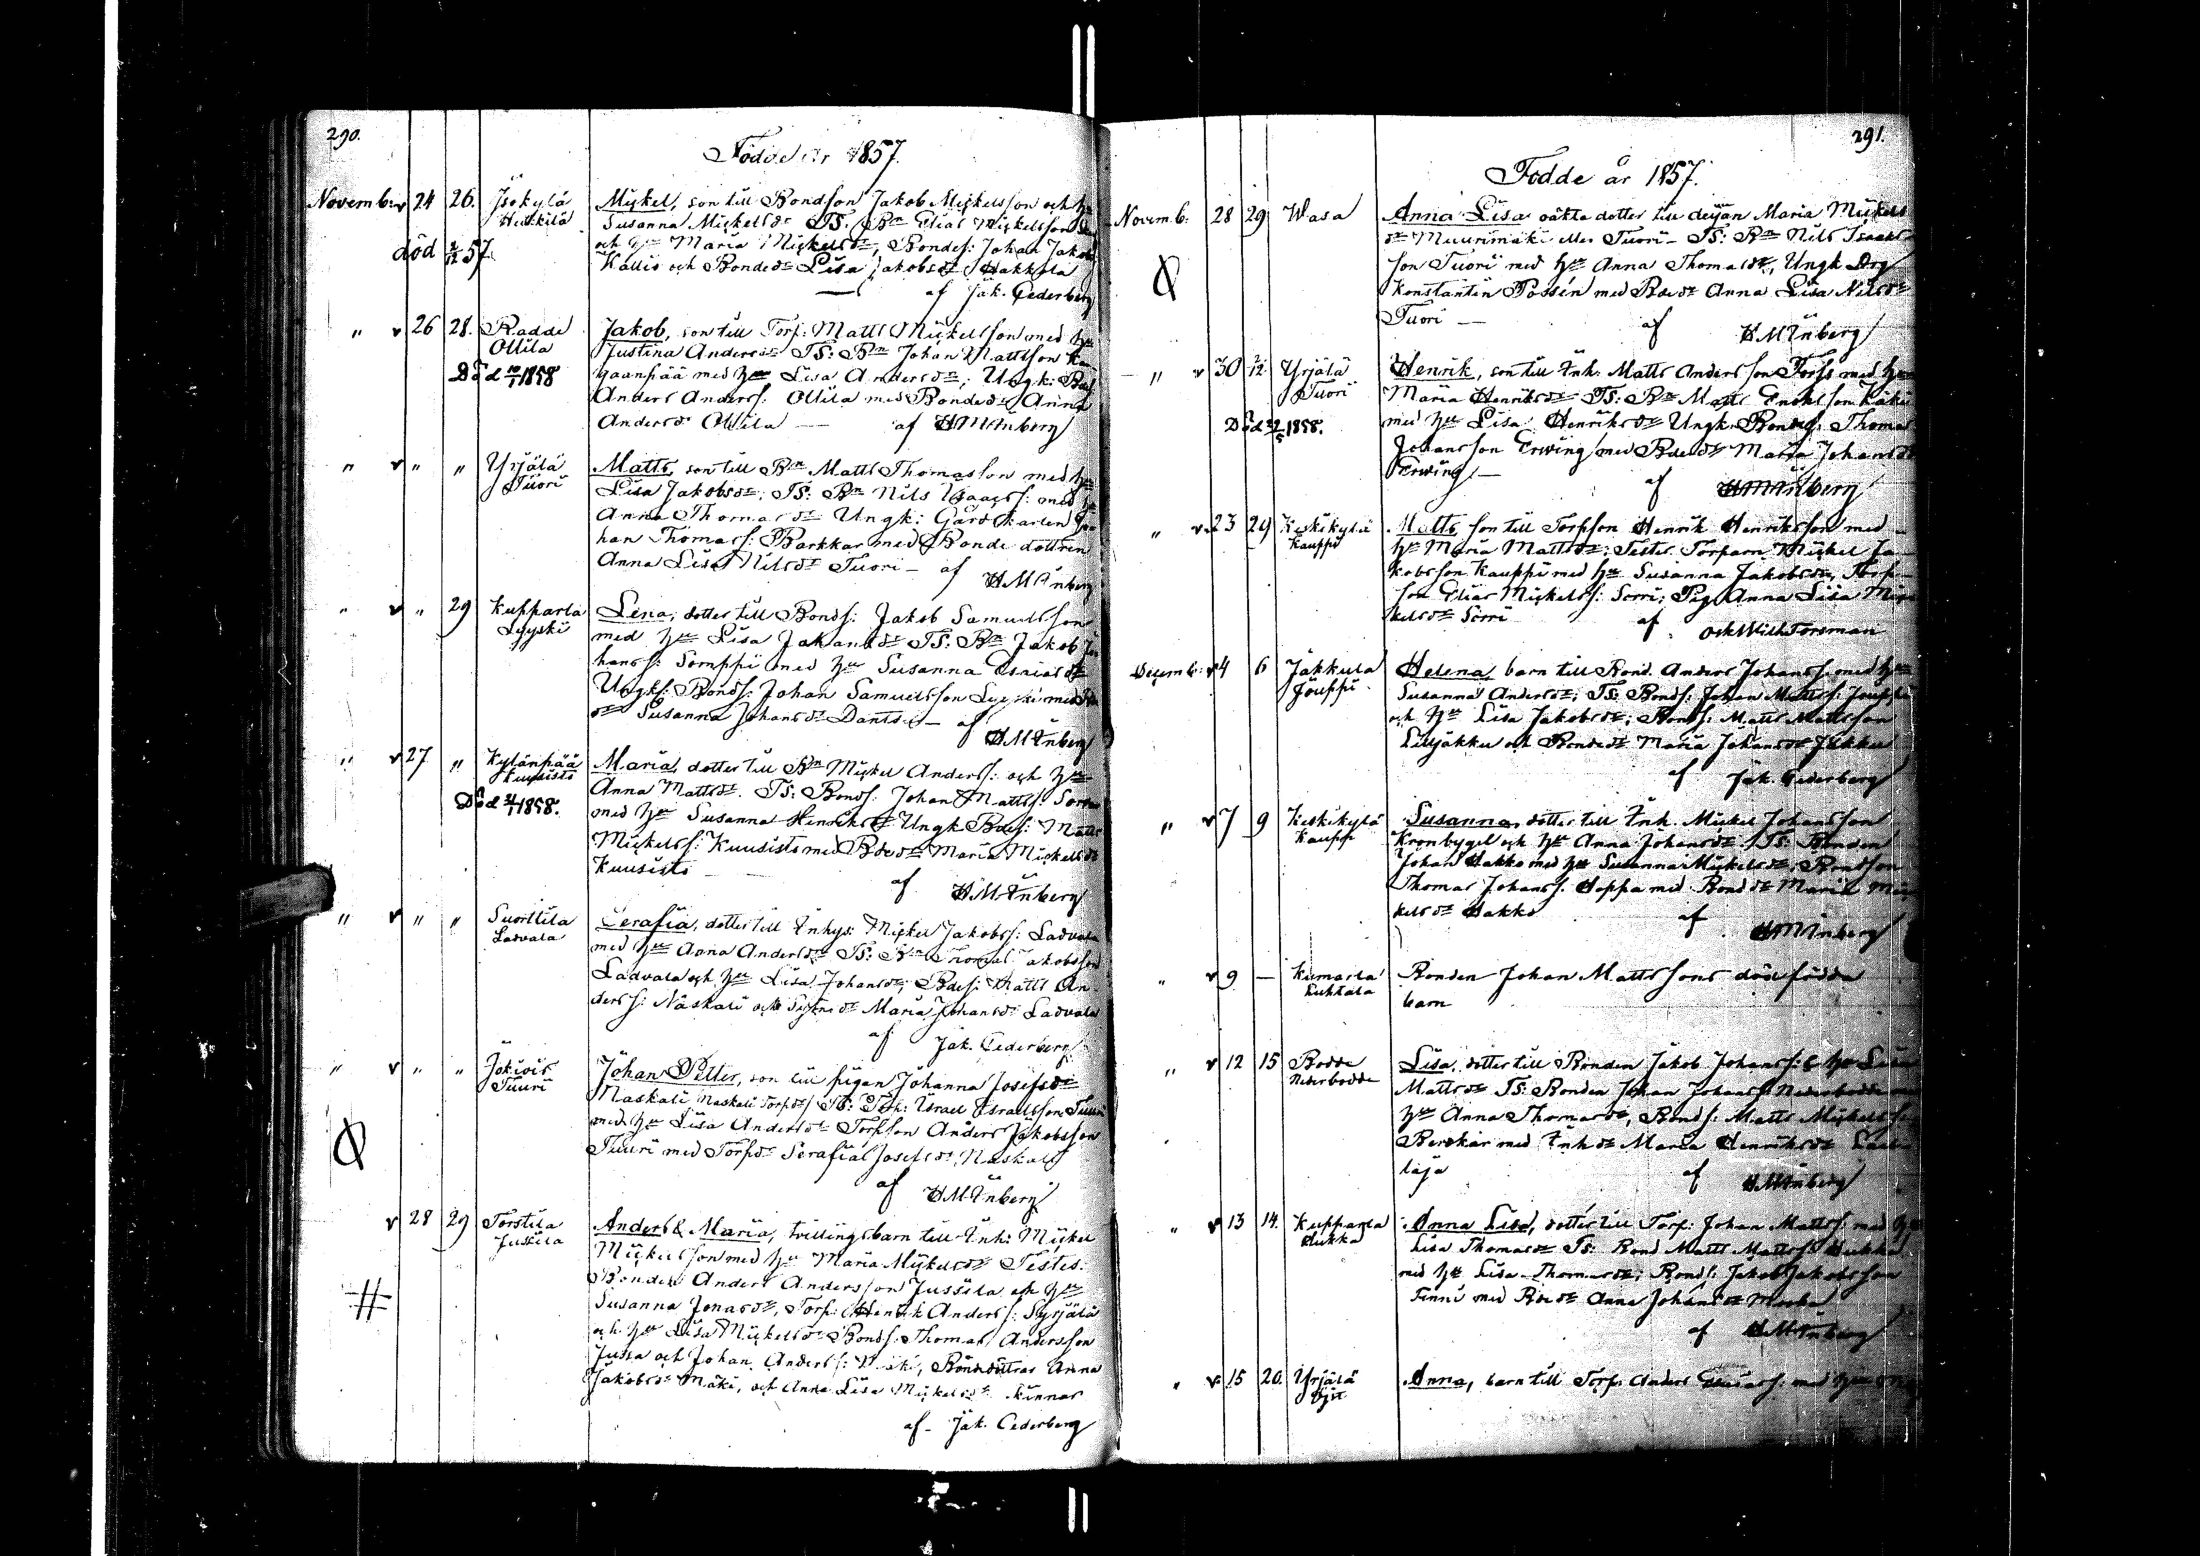 290.
Födde år 1857.
Novemb: v 24 26. Isokylä Mickel, son till Bondson Jakob Mickelsson och hu
Heikkilä Susanna Mickelsdr TS: Bn Elias Mickelsson
död 2/12 57. och hu Maria Mickelsdr, Bondes: Johan Jakobs
Kallio och Bondedr Lisa Jakobsdr Hakkola
af Jak. Cederberg
" v 26 28. Radde Jakob, son till Torp: Matts Mickelsson med hu
Ollila Justina Andersdr TS: Bn Johan Mattsson
Död 10/1 1858 med hu Lisa Andersdr; Ungk: Bds
Anders Anderss: Ollila med Bondedr Anna
Andersdr Ollila — af HMÅnberg
" v " " Yrjälä Matts, son till Bn Matts Thomasson med hu
Tuori Lisa Jakobsdr; TS: Bn Nils Isaacss: med hu
Anna Thomasdr Ungk: Gårdskarlen Jo
han Thomass: Barkkar med Bonde dottren
Anna Lisa Nilsdr Tuori — af
HMÅnberg
" v " 29 Kupparla Lena, dotter till Bonds: Jakob Samuelsson
Lyyski med hu Lisa Johansdr TS: Bn Jakob Jo
hanss: Somppi med hu Susanna Esaiasdr
Ungk: Bonds: Johan Samuelsson Lyyski med
dr Susanna Johansdr Dants — af
HMÅnberg
" v 27 " Kylänpää Maria, dotter till Bn Mickel Anderss: och hu
Kuusisto Anna Mattsdr. TS: Bonds: Johan Mattss:
Död 1858. med hu Susanna Henriksdr Ungk Bdes: Matts
Mickelss: Kuusisto med Bdedr Maria Mickelsdr
Kuusisto
af HMÅnberg
" v " " Suorttila Serafia, dotter till Inhys: Mickel Jakobss: Ladvala
Ladvala med hu Anna Andersdr TS: Bn Thomas Jakobsson
Ladvala och hu Lisa Johansdr; Bdes: Matts An
derss: Näskali och Maria Johansdr Ladvala
af Jak. Cederberg
" v " " Jokivis Johan Petter, son till pigan Johanna Josefsdr
Tuuri Naskali Naskali Torpdr/ TS: Torp: Israel Israelsson Tuuri
med hu Lisa Andersdr Torpson Anders Jakobsson
Tuuri med Torpdr Serafia Josefsdr Naskali
af HMÅnberg
v 28 29 Torstila Anders & Maria, tvillingsbarn till Inh: Mickel
Jussila Mickelsson med hu Maria Mickelsdr Testes:
Bonden Anders Andersson Jussila och hu
Susanna Jonasdr, Torp: Henrik Anderss: Syrjälä
och hu Lisa Mickelsdr Bonds: Thomas Andersson
Jussa och Johan Anderss: Mäki, Bondedöttrar Anna
Jakobsdr Mäki, och Anna Lisa Mickelsdr Kinnar
af Jak. Cederberg
291.
Födde år 1857.
Novemb: 28 29 Wasa Anna Lisa oäkta dotter till deijan Maria Mickels
dr Muurimäki eller Tuori — TS: Bn Nils Isaacs
son Tuori med hu Anna Thomasdr, Ungk Drg
Konstantin Possén med Bdedr Anna Lisa Nilsdr
Tuori — af HMÅnberg
" v 30 2/12 Yrjälä Henrik, son till Inh: Matts Andersson Forss med hu
Tuori Maria Henriksdr TS: Bn Matts
Död 1858. med hu Lisa Henriksdr Ungk Bonds: Thomas
Johansson Erwing med Bdedr Maria Johansdr
Erwing — af HMÅnberg
" v 23 29 Keskikylä Matts son till Torpson Henrik Henriksson med
Kauppi hu Maria Mattsdr; Testes: Torparn Mickel Ja
kobsson Kauppi med hu Susanna Jakobsdr, Torp
son Elias Mickelss: Sorri; Pig. Anna Lisa Mic
kelsdr Sorri af OchWilhForsman
Decemb: v 4 6 Jakkula Helena, barn till Bond. Anders Johanss: med hu
Jouppi Susanna Andersdr; TS: Bonds: Johan Mattss: Jouppi
och hu Lisa Jakobsdr; Bonds: Matts Mattsson
Lilljakku och Bondedr Maria Johansdr Jakku
af Jak. Cederberg
" v 7 9 Keskikylä Susanna, dotter till Inh. Mickel Johansson
Kauppi Kronbygel och hu Anna Johansdr TS: Bonden
Johan Hakko med hu Susanna Mickelsdr, Bondson
Thomas Johanss: Hoppa med Bonddr Maria Mic
kelsdr Hakko af HMÅnberg
" v 9 — Kumarla Bonden Johan Mattssons dödfödda
Luhtala barn
" v 12 15 Bodde Lisa, dotter till Bonden Jakob Johanss: & hu Lisa
Nederbodde Mattsdr TS: Bonden Johan Johanss: Nederbodde med
hu Anna Thomasdr, Bonds: Matts Mickelsson
med Inhdr Maria Henriksdr
laja af HMÅnberg
" v 13 14. Kupparla Anna Lisa, dotter till Torp: Johan Mattss: med hu
Hukka Lisa Thomasdr TS: Bond Matts Mattss: Hukka
med hu Lisa Thomasdr; Bonds: Jakob Jakobsson
Finni med Bdedr Anna Johansdr
af HMÅnberg
" v 15 20. Yrjälä Anna, barn till Torp: Anders med hu